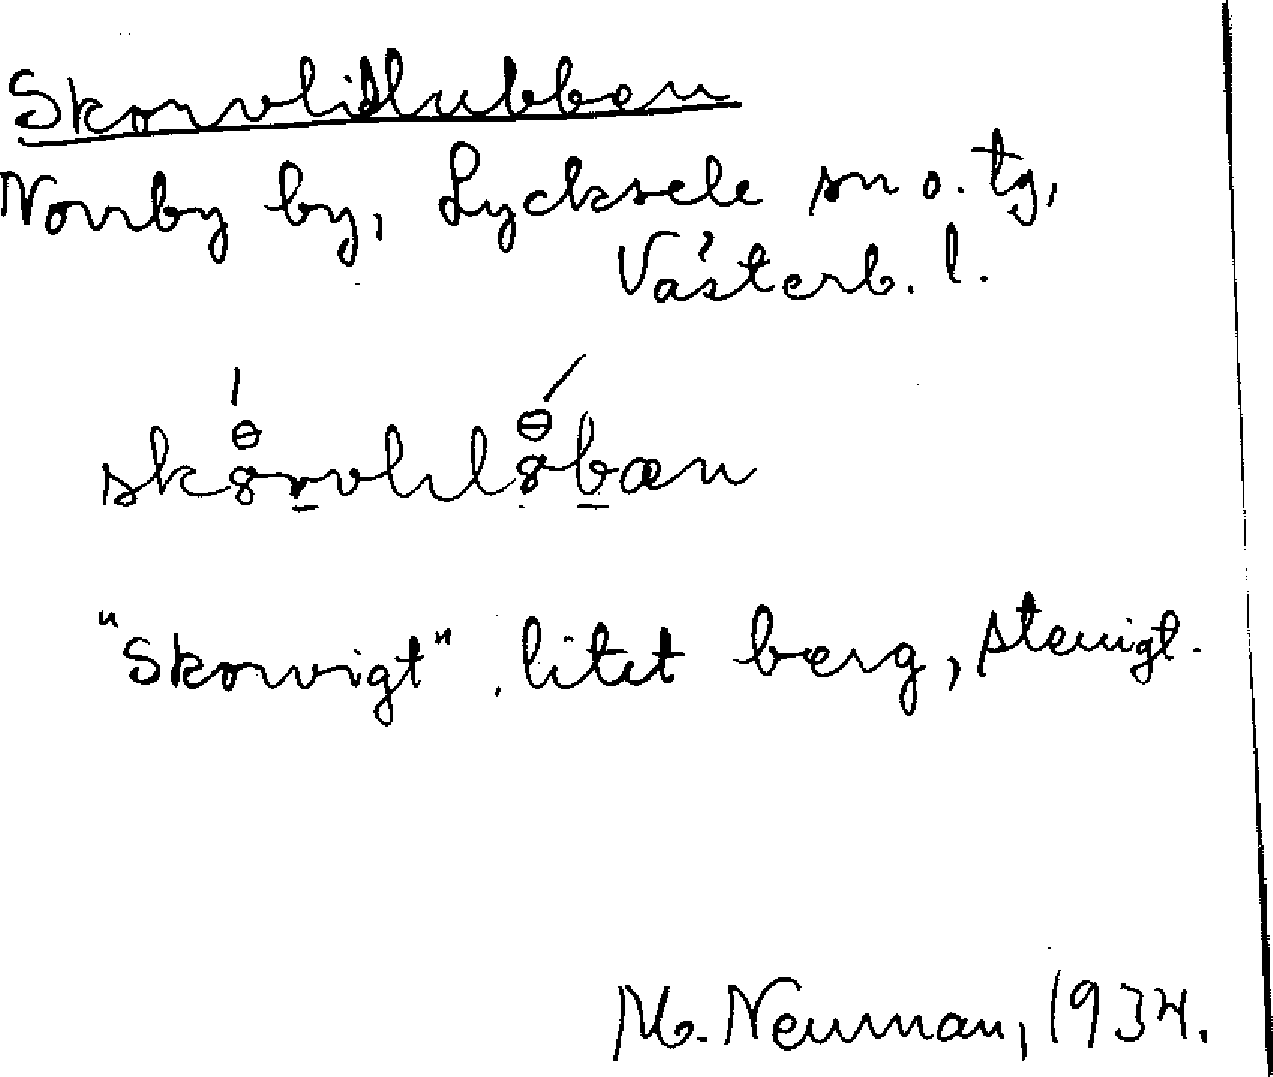 Skorvlidlubben
Norrby by, Lycksele sn o. tg,
Västerb. l.
"Skorvigt", litet berg, stenigt.
M. Neuman, 1934.